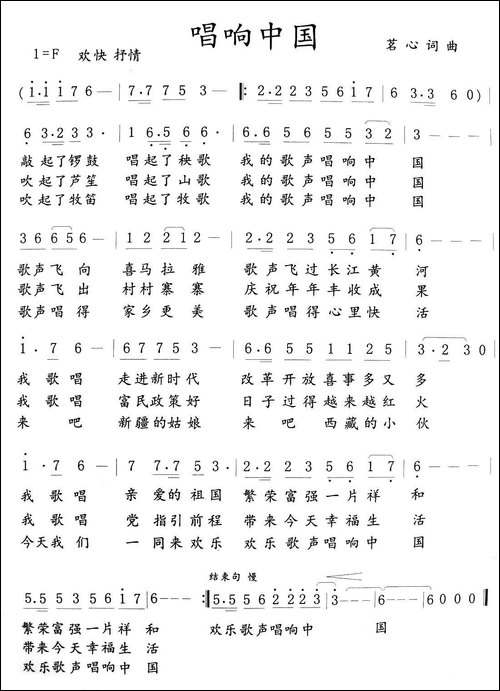 唱响中国
1=F 欢快 抒情 茗心词曲
(i·i i i 7 6 — | 7·7 7 5 3 — ‖: 2·2 2 3 5 6 1 7 | 6 3·3 6 0)
6 3·2 3 3 · | 1 6·5 6 6 · | 6·6 5 6 5 5 3 2 | 3 — — —
敲起了锣鼓 唱起了秧歌 我的歌声唱响中 国
吹起了芦笙 唱起了山歌 我的歌声唱响中 国
吹起了牧笛 唱起了牧歌 我的歌声唱响中 国
3 6 6 5 6 — | 1 2 2 1 2 — | 2·2 2 3 5 6 1 7 | 6 — — —
歌声飞向 喜马拉雅 歌声飞过长江黄 河
歌声飞出 村村寨寨 庆祝年年丰收成 果
歌声唱得 家乡更美 歌声唱得心里快 活
i·7 6 — | 6 7 7 5 3 — | 6·6 5 5 1 1 2 5 | 3·2 3 0
我歌唱 走进新时代 改革开放喜事多又 多
我歌唱 富民政策好 日子过得越来越红 火
来吧 新疆的姑娘 来吧 西藏的小 伙
i·7 6 — | 7 7·7 5 3 | 2·2 2 3 5 6 1 7 | 6 — — —
我歌唱 亲爱的祖国 繁荣富强一片祥 和
我歌唱 党指引前程 带来今天幸福生 活
今天我们 一同来欢乐 欢乐歌声唱响中 国
结束句 慢
5·5 5 3 5 6 i 7 | 6 — — — :‖ 5·5 5 6 2 2 2 2 | 3 — — — | 6 — — — | 6 0 0 0 ‖
繁荣富强一片祥 和 欢乐歌声唱响中 国
带来今天幸福生 活
欢乐歌声唱响中 国